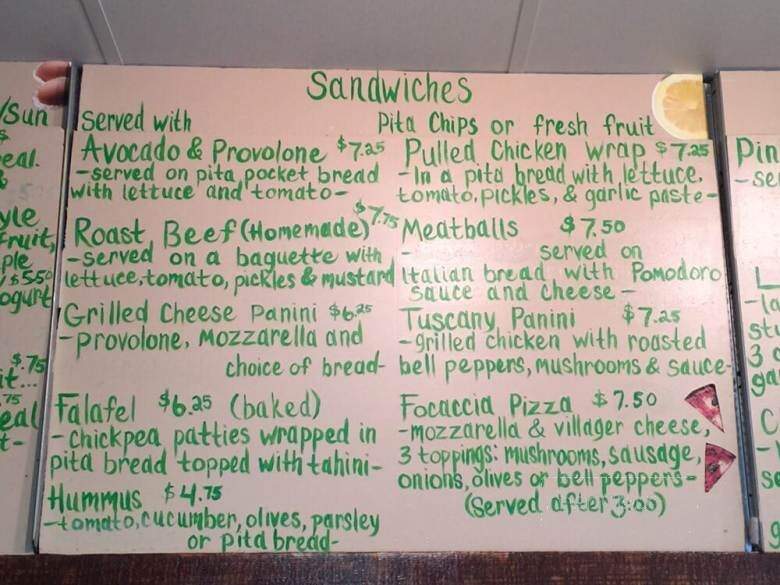 Sandwiches
Served with Pita Chips or fresh fruit
Avocado & Provolone $7.25
-served on pita pocket bread
with lettuce and tomato-
Roast Beef (Homemade) $7.75
-served on a baguette with
lettuce, tomato, pickles & mustard
Grilled Cheese Panini $6.25
-provolone, Mozzarella and
choice of bread-
Falafel $6.25 (baked)
-chickpea patties wrapped in
pita bread topped with tahini-
Hummus $4.75
-tomato, cucumber, olives, parsley
or pita bread-
Pulled Chicken wrap $7.25
-In a pita bread with lettuce,
tomato, pickles, & garlic paste-
Meatballs $7.50
- served on
Italian bread with Pomodoro
Sauce and cheese-
Tuscany Panini $7.25
-grilled chicken with roasted
bell peppers, mushrooms & sauce-
Focaccia Pizza $7.50
-mozzarella & villager cheese,
3 toppings: mushrooms, sausage,
onions, olives or bell peppers-
(Served after 3:00)